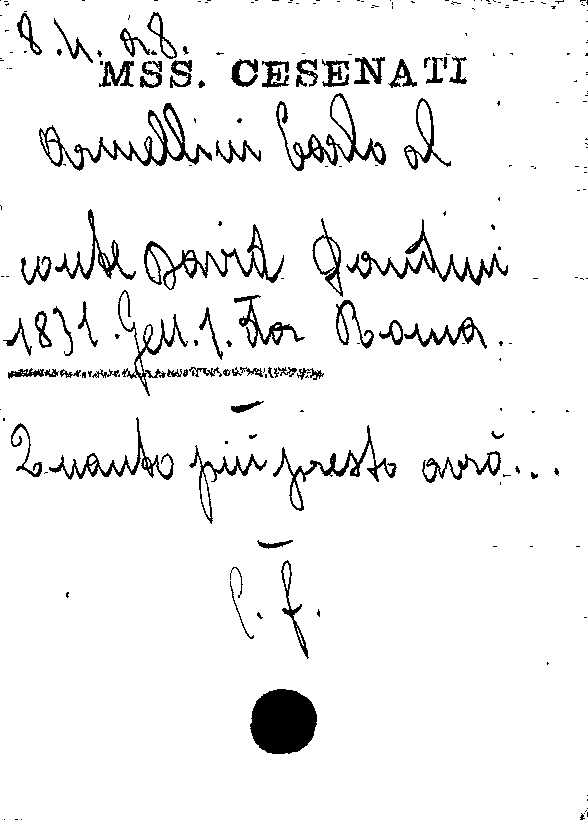 8. n. n. 8.
MSS. CESENATI
Armellini Carlo al
conte David Fantini
1831. Gen. 1. Da Roma.
Quanto più presto avrò...
C. f.